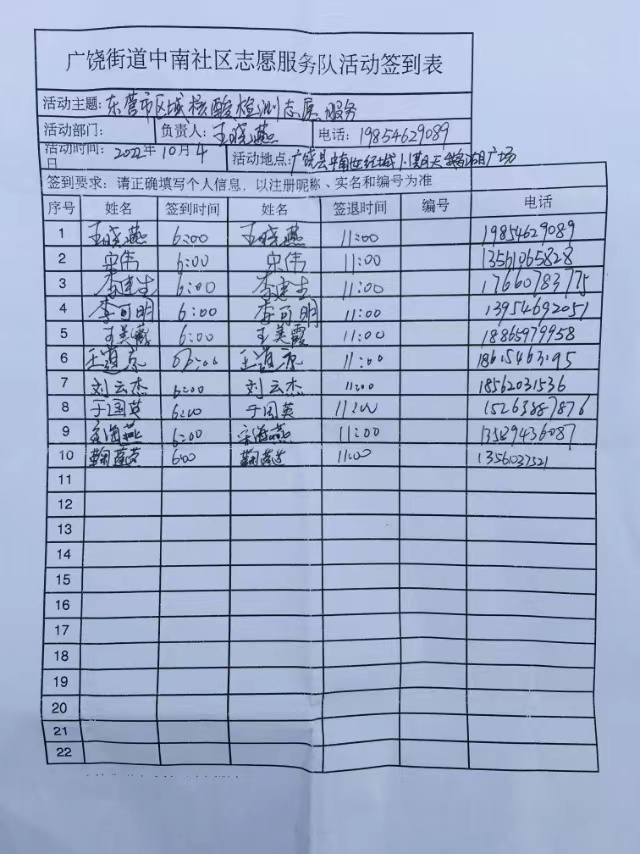 广饶街道中南社区志愿服务队活动签到表
活动主题：东营市区域核酸检测志愿服务
活动部门： 负责人：王晓燕 电话：19854629089
活动时间：2022年10月4日 活动地点：广饶县中南世纪城 广场
签到要求：请正确填写个人信息，以注册昵称、实名和编号为准
序号 姓名 签到时间 姓名 签退时间 编号 电话
1 王晓燕 6:00 王晓燕 11:00 19854629089
2 宋伟 6:00 宋伟 11:00 13561065828
3 李建生 6:00 李建生 11:00 17660783775
4 李可明 6:00 李可明 11:00 13954692051
5 王美霞 6:00 王美霞 11:00 18865979958
6 王道 6:00 王道 11:00
7 刘云杰 6:00 刘云杰 11:00 18562031536
8 于国英 6:00 于国英 11:00 15263887876
9 宋海燕 6:00 宋海燕 11:00 13589436087
10 6:00 11:00 1356037521
11
12
13
14
15
16
17
18
19
20
21
22